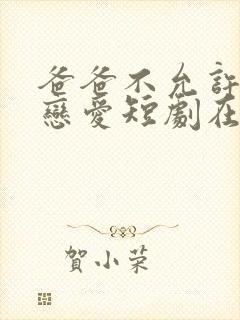 爸爸不允許
戀愛短劇在
賀小荣